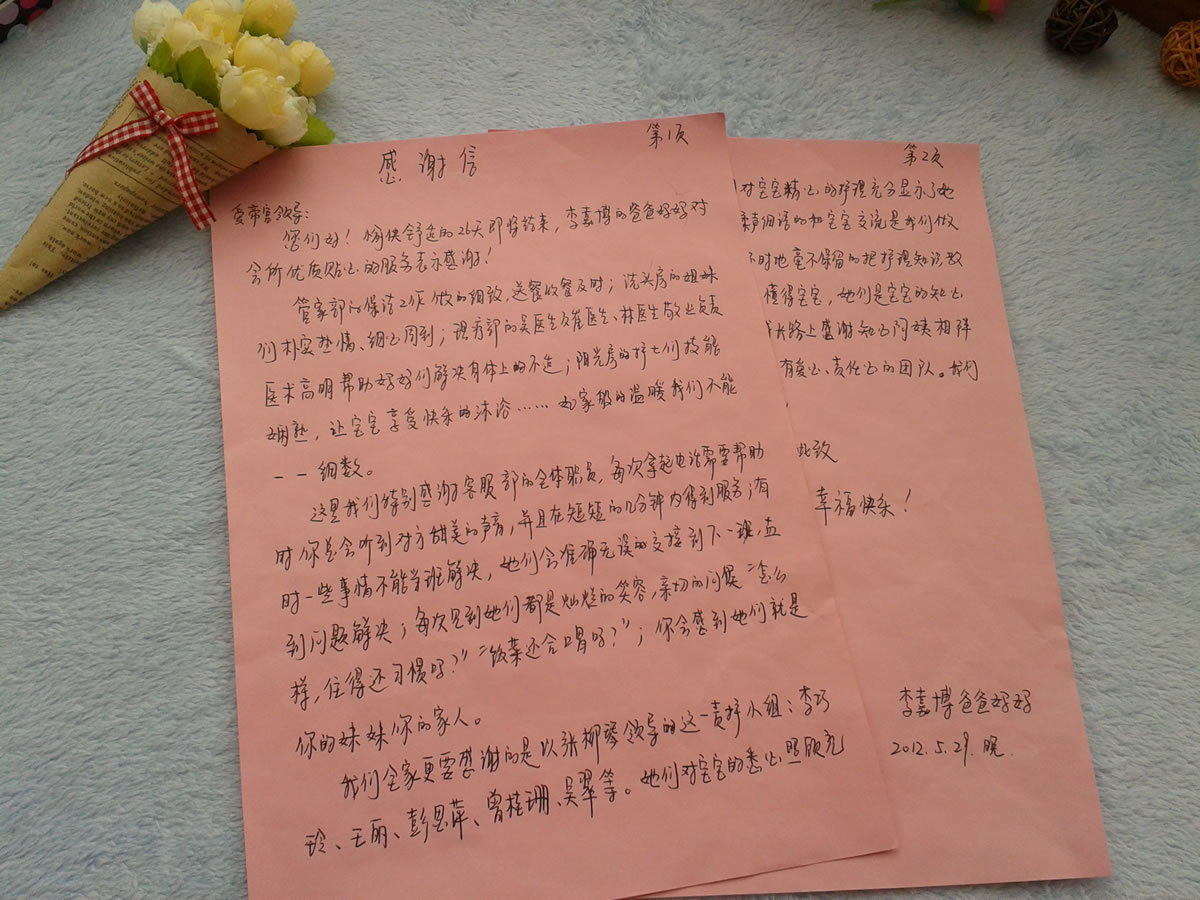 感谢信
第1页
爱帝宫领导:
您们好！愉快舒适的26天即将结束，李嘉博的爸爸妈妈对
会所优质贴心的服务表示感谢！
管家部的保洁工作做的细致，送餐收餐及时；洗头房的姐妹
们朴实热情、细心周到；现方部的吴医生及崔医生、林医生敬业负责
医术高明帮助妈妈们解决身体上的不适；阳光房的护士们技能
娴熟，让宝宝享受快乐的沐浴……如家般的温暖我们不能
一一细数。
这里我们特别感谢客服部的全体职员，每次拿起电话需要帮助
时你总会听到对方甜美的声音，并且在短短的几分钟内得到服务；有
时一些事情不能当班解决，她们会准确无误的交接到下一班，直
到问题解决；每次见到她们都是灿烂的笑容，亲切的问候“怎么
样，住得还习惯吗？”“饭菜还合胃吗？”；你会感到她们就是
你的妹妹你的家人。
我们全家更要感谢的是以张柳琴领导的这一责护小组：李巧
玲、王丽、彭思萍、曾桂珊、吴翠等。她们对宝宝的悉心照顾充
第2页
对宝宝精心的护理充分显示了她
柔声细语的和宝宝交流是我们做
不时地毫不保留的把护理知识教
懂得宝宝，她们是宝宝的知心
长路上感谢知心阿姨相伴
有爱心、责任心的团队。我们
此致
幸福快乐！
李嘉博爸爸妈妈
2012.5.29.晚.